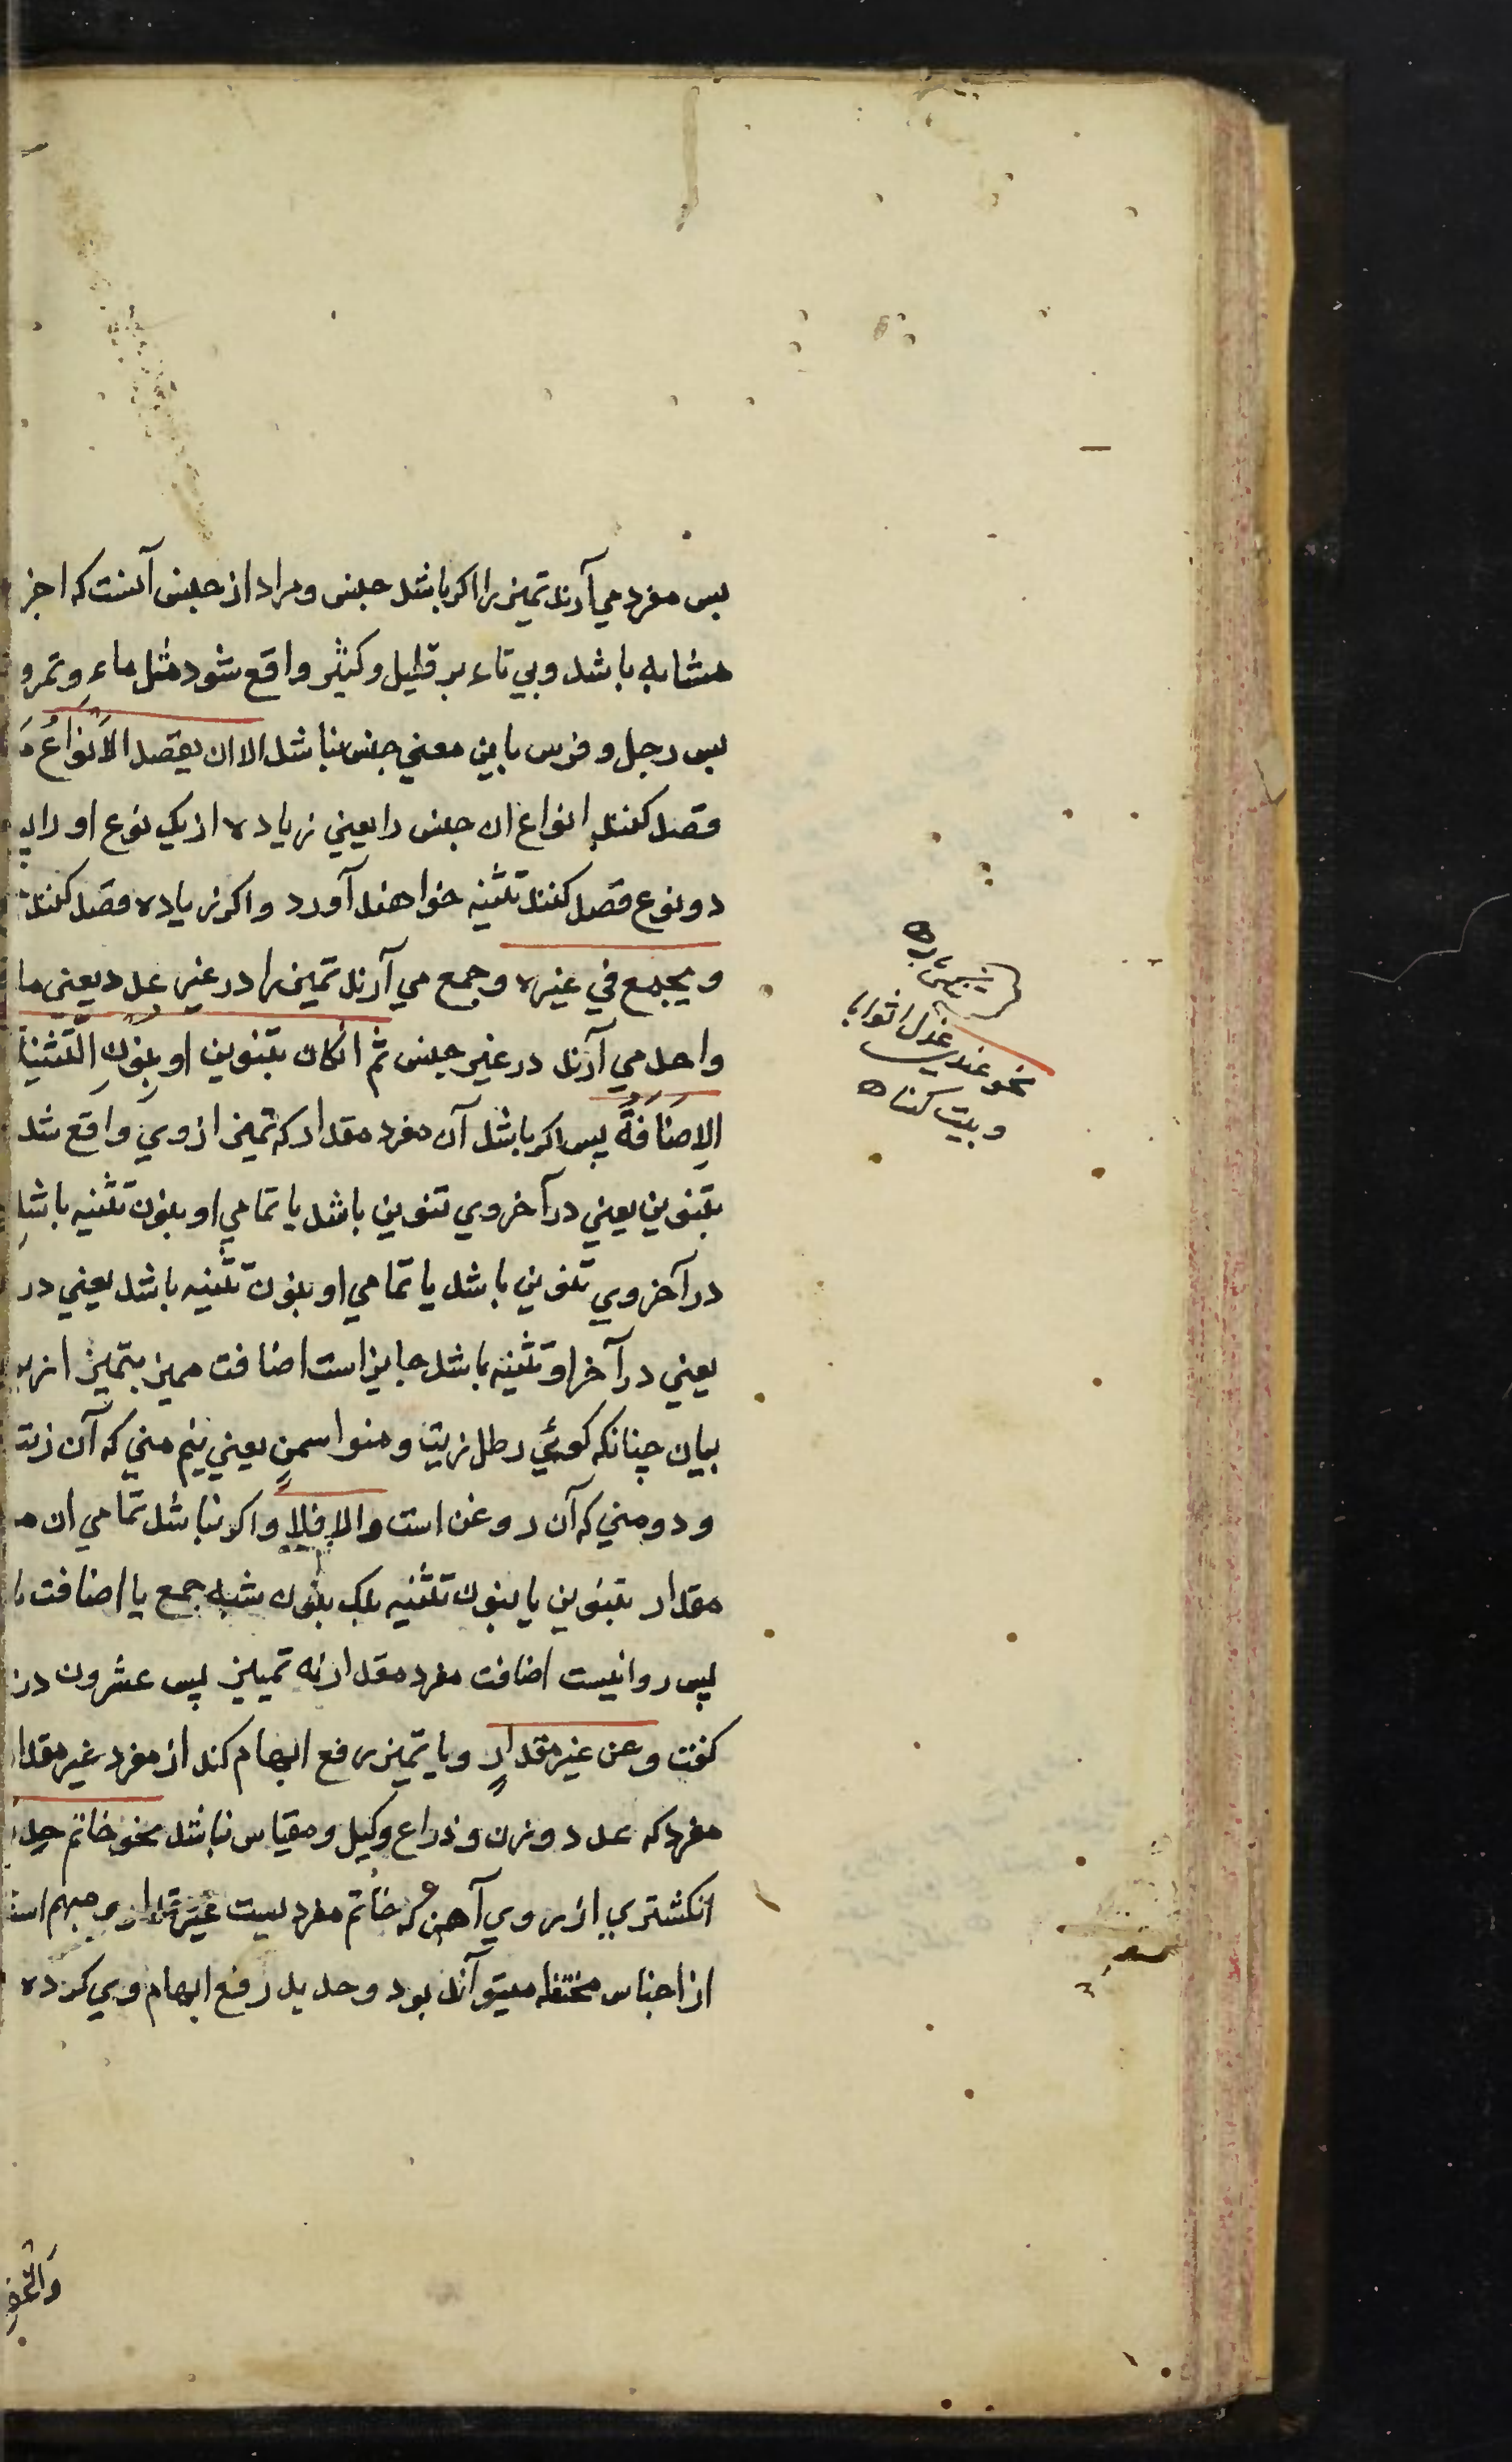 پس مفرد مي آرند تمیز را اکر باشد جنس و مراد از جنس آنست که اجز
مشابه باشد و بي تاء بر قلیل و کثیر واقع شود مثل ماء و تمر و
پس رجل و فرس باین معني جنس نباشد الا ان یقصد الاَنواعُ
قصد کنند انواع ان جنس را یعني زیاده از یک نوع او را
دو نوع قصد کنند تثنیه خواهند آورد و اکر زیاده قصد کنند
و یجمع في غیره و جمع مي آرند تمیز را در غیر عدد یعني ما
واحد مي آرند در غیر جنس ثم انکان بتنوین او بنون التثنیة
الاِضَافَةُ پس اکر باشد آن مفرد مقدار که تمیز از وي واقع شد
بتنوین یعني در آخر وي تنوین باشد یا تمامي او بنون تثنیه باشد
در آخر وي تنوین باشد یا تمامي او بنون تثنیه باشد یعني در
یعني در آخر او تثنیه باشد جایز است اضافت ممیز بتمیز از
بیان چنانکه کوئي رطل زیت و منوا سمنٍ یعني نیم مني که آن زیت
و دو مني که آن روغن است و الا فلا و اکر نباشد تمامي ان
مقدار بتنوین یا بنون تثنیه بلک بنون شبه جمع یا اضافت
پس روا نیست اضافت مفرد مقدار به تمییز پس عشرون در
کفت و عن غیر مقدارٍ و یا تمیز رفع ابهام کند از مفرد غیر مقدا
مفرد که عدد و وزن و ذراع و کیل و مقیاس نباشد نحو خاتم حدید
انکشتري از روي آهن که خاتم مفرد یست غیر مقدار مبهم است
از اجناس مختلفه میتواند بود و حدید رفع ابهام وي کرده
نحو عندي عدل اثوابا
و بیت کتاب